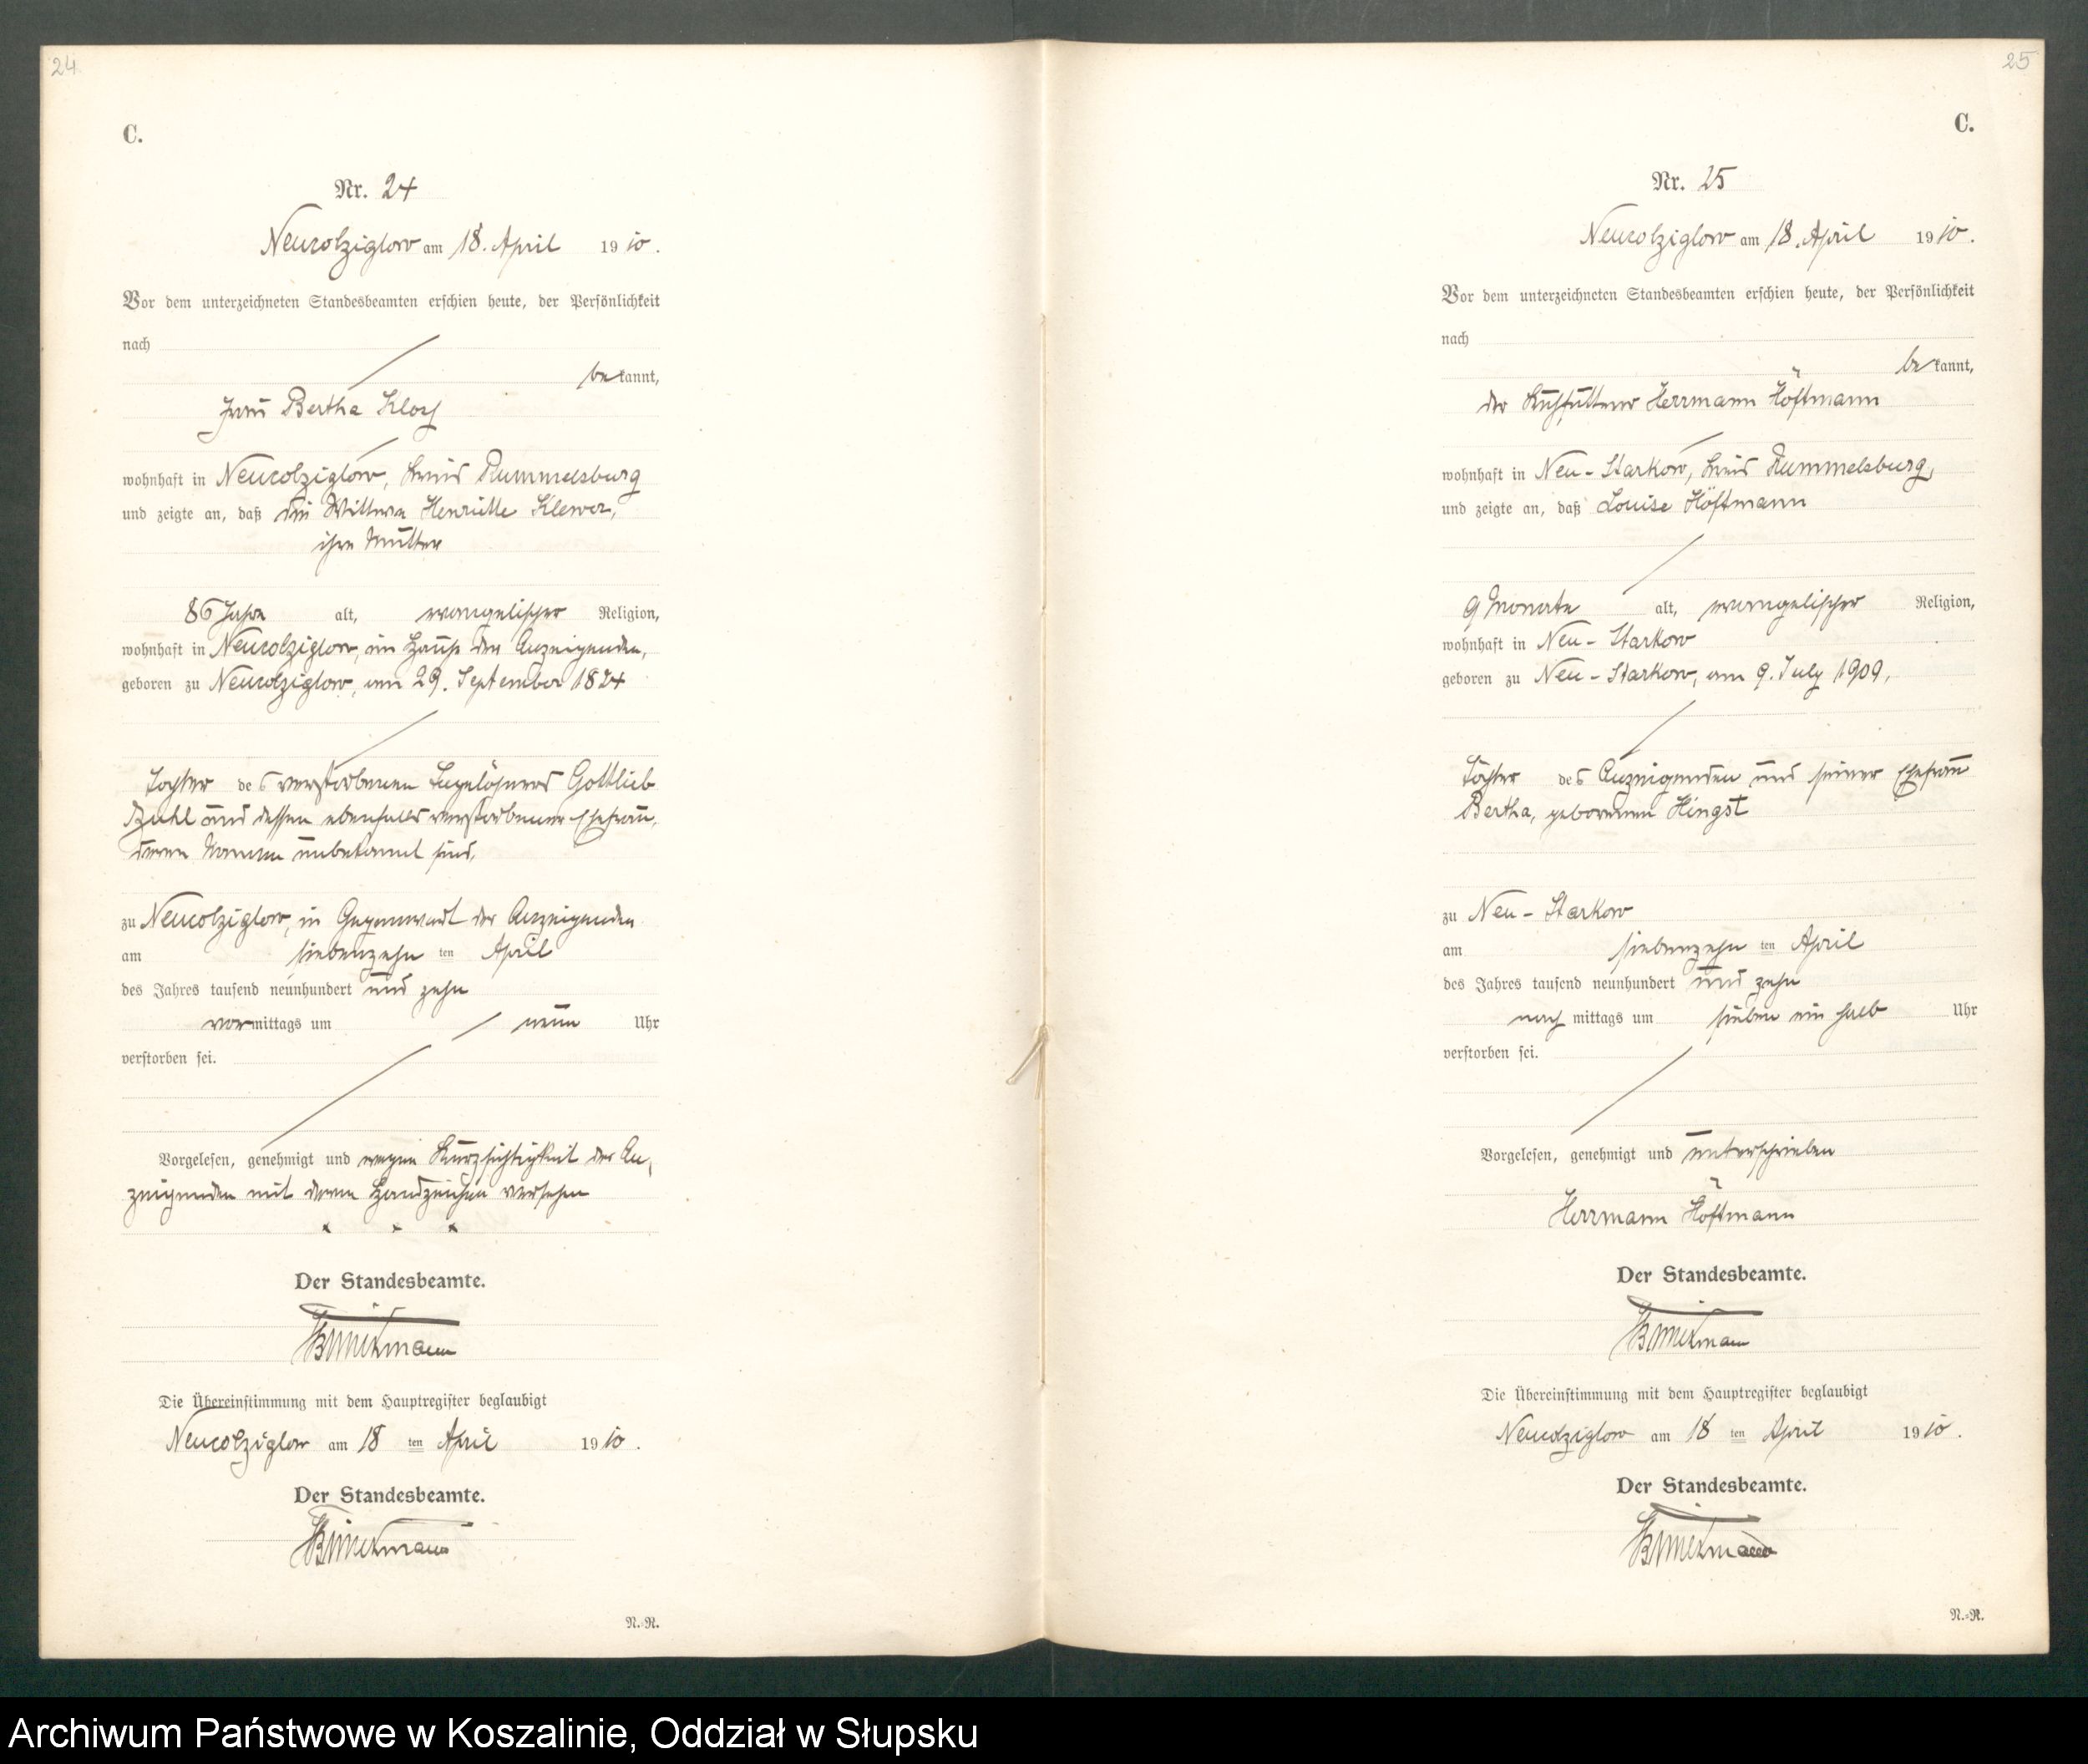 24
C.
Nr. 24
Neukolziglow am 18. April 1910.
Vor dem unterzeichneten Standesbeamten erschien heute, der Persönlichkeit
nach
bekannt,
Frau Bertha
wohnhaft in Neukolziglow, Kreis Rummelsburg
und zeigte an, daß die Wittwe Henriette Klewer,
ihre Mutter
Jahre alt, evangelischer Religion,
wohnhaft in Neukolziglow, im Hause der Anzeigenden,
geboren zu Neukolziglow, am 29. September 1824
Tochter des verstorbenen Tagelöhners Gottlieb
und dessen ebenfalls verstorbener Ehefrau,
deren Namen unbekannt sind,
zu Neukolziglow, in Gegenwart der Anzeigenden
am siebenzehn ten April
des Jahres tausend neunhundert und zehn
vormittags um neun Uhr
verstorben sei.
Vorgelesen, genehmigt und wegen Kurzsichtigkeit der An-
zeigenden mit deren Handzeichen versehen
x x x
Der Standesbeamte.
Die Übereinstimmung mit dem Hauptregister beglaubigt
Neukolziglow am 18 ten April 1910.
Der Standesbeamte.
N.-R.
25
C.
Nr. 25
Neukolziglow am 18. April 1910.
Vor dem unterzeichneten Standesbeamten erschien heute, der Persönlichkeit
nach
bekannt,
der Kuhfütterer Herrmann Höftmann
wohnhaft in Neu-Starkow, Kreis Rummelsburg,
und zeigte an, daß Louise Höftmann
9 Monate alt, evangelischer Religion,
wohnhaft in Neu-Starkow
geboren zu Neu-Starkow, am 9. July 1909,
Tochter des Anzeigenden und seiner Ehefrau
Bertha, geborenen Hingst
zu Neu-Starkow
am siebenzehn ten April
des Jahres tausend neunhundert und zehn
nachmittags um sieben ein halb Uhr
verstorben sei.
Vorgelesen, genehmigt und unterschrieben
Herrmann Höftmann
Der Standesbeamte.
Die Übereinstimmung mit dem Hauptregister beglaubigt
Neukolziglow am 18 ten April 1910.
Der Standesbeamte.
N.-R.
Archiwum Państwowe w Koszalinie, Oddział w Słupsku